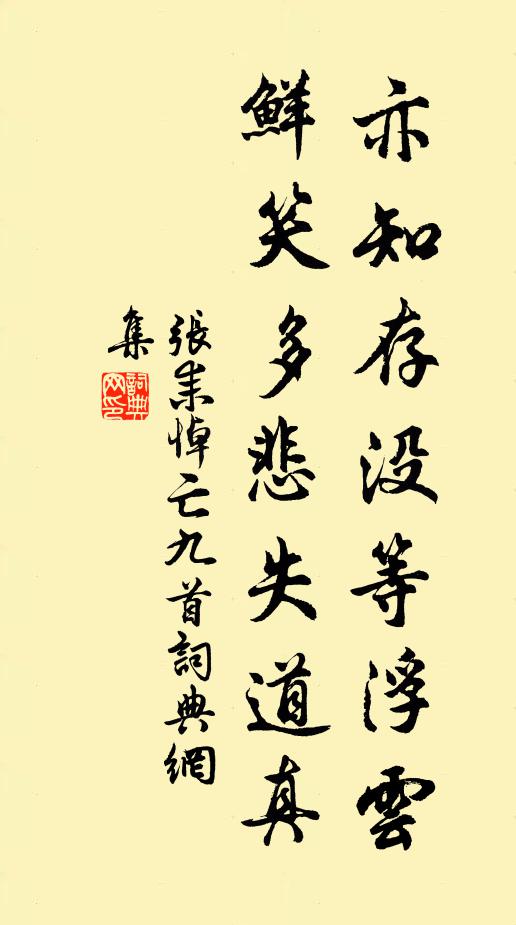 亦知存没等浮雲
鮮笑多悲失道真
張耒悼亡九首詞典網
集
詞典網印